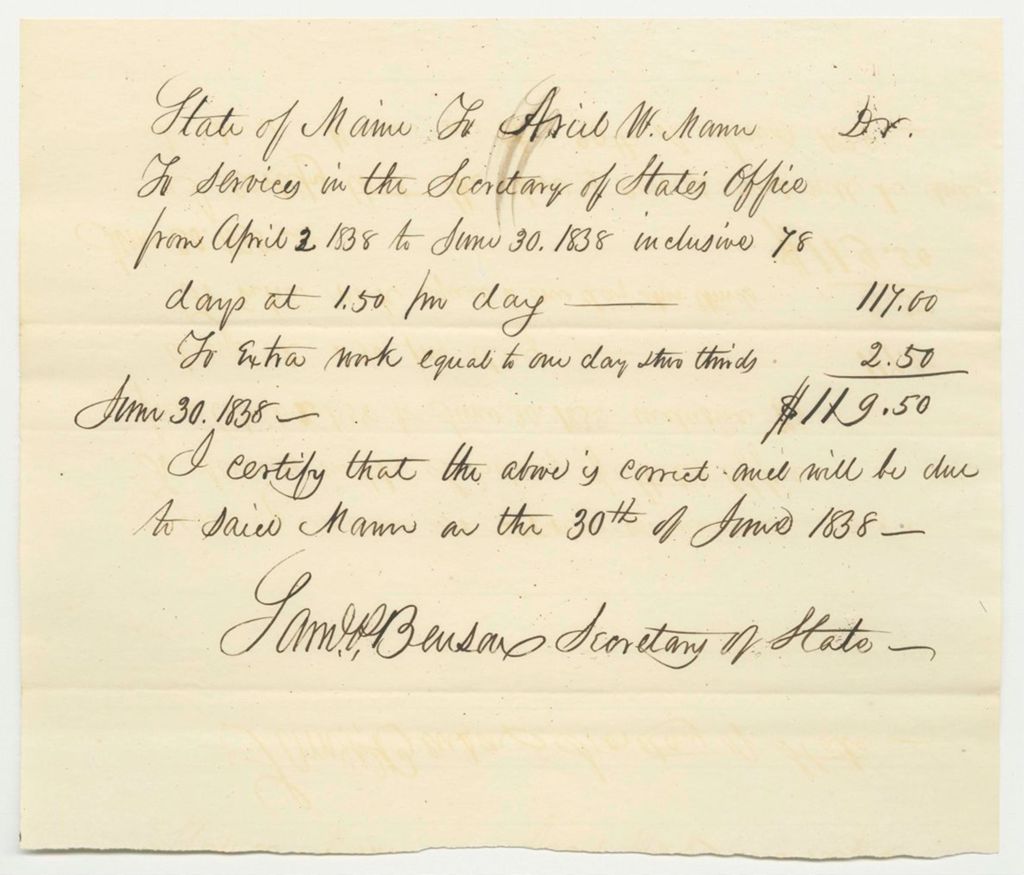 State of Maine To Ariel W. Mann Dr.
To services in the Secretary of State's Office
from April 2 1838 to June 30. 1838 inclusive 78
days at 1.50 per day — 117.00
To Extra work equal to one day & two thirds 2.50
June 30. 1838 — $119.50
I certify that the above is correct and will be due
to said Mann on the 30th of June 1838 —
Saml. P. Benson Secretary of State —